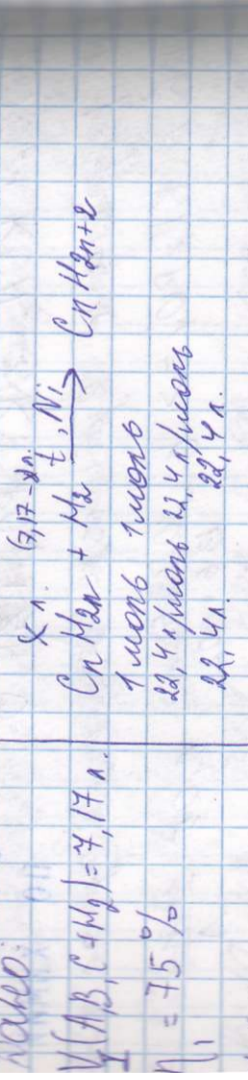 Дано:
V(A,B,C+H₂)=7,17 л.
I
η₁ = 75 %
x л. (7,17-x)л.
CnH2n + H₂ t, Ni → CnH2n+2
1 моль 1 моль
22,4 л/моль 22,4 л/моль
22,4 л. 22,4 л.